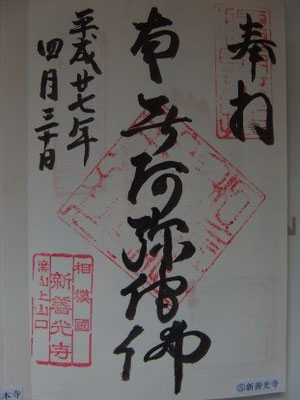 奉拝
南無阿弥陀佛
平成廿七年
四月三十日
相模國
新善光寺
葉山上山口
⑤新善光寺
本寺